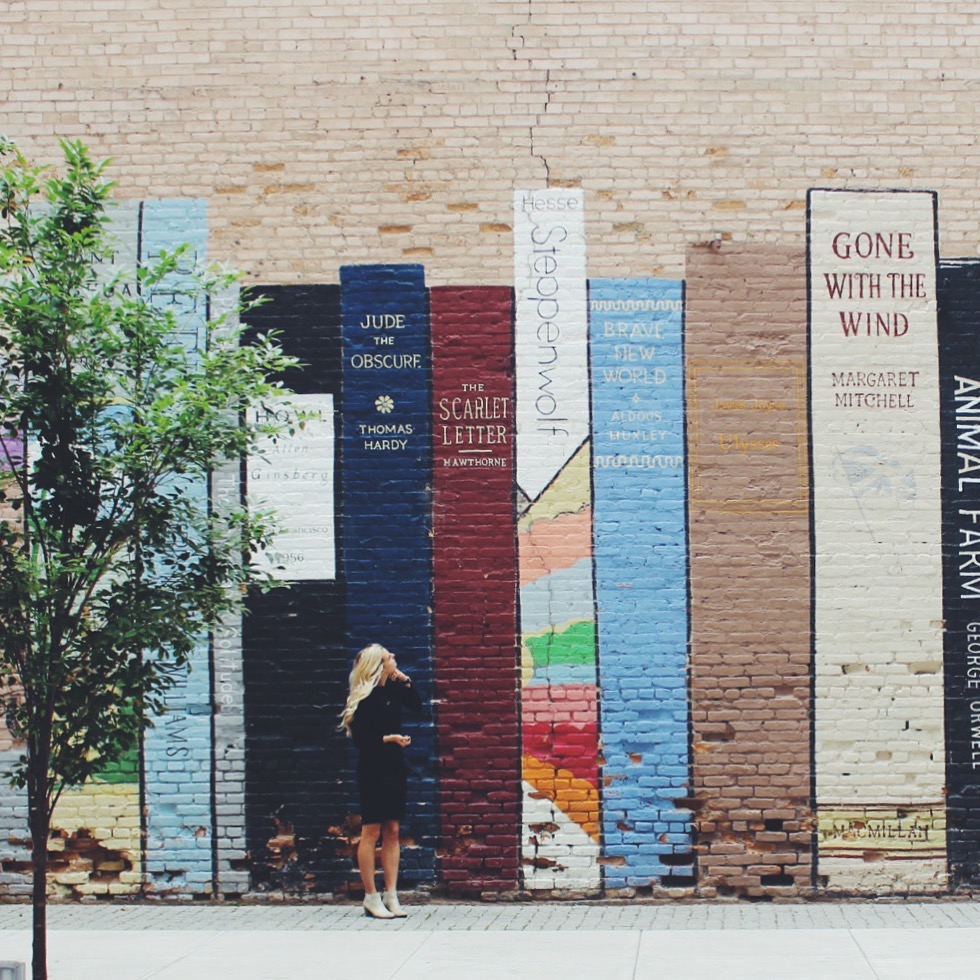 WILLIAMS
HOWL
Allen
Ginsberg
Francisco
1956
JUDE
THE
OBSCURE
THOMAS
HARDY
THE
SCARLET
LETTER
HAWTHORNE
Hesse
Steppenwolf
BRAVE
NEW
WORLD
ALDOUS
HUXLEY
Ulysses
GONE
WITH THE
WIND
MARGARET
MITCHELL
MACMILLAN
ANIMAL FARM
GEORGE ORWELL